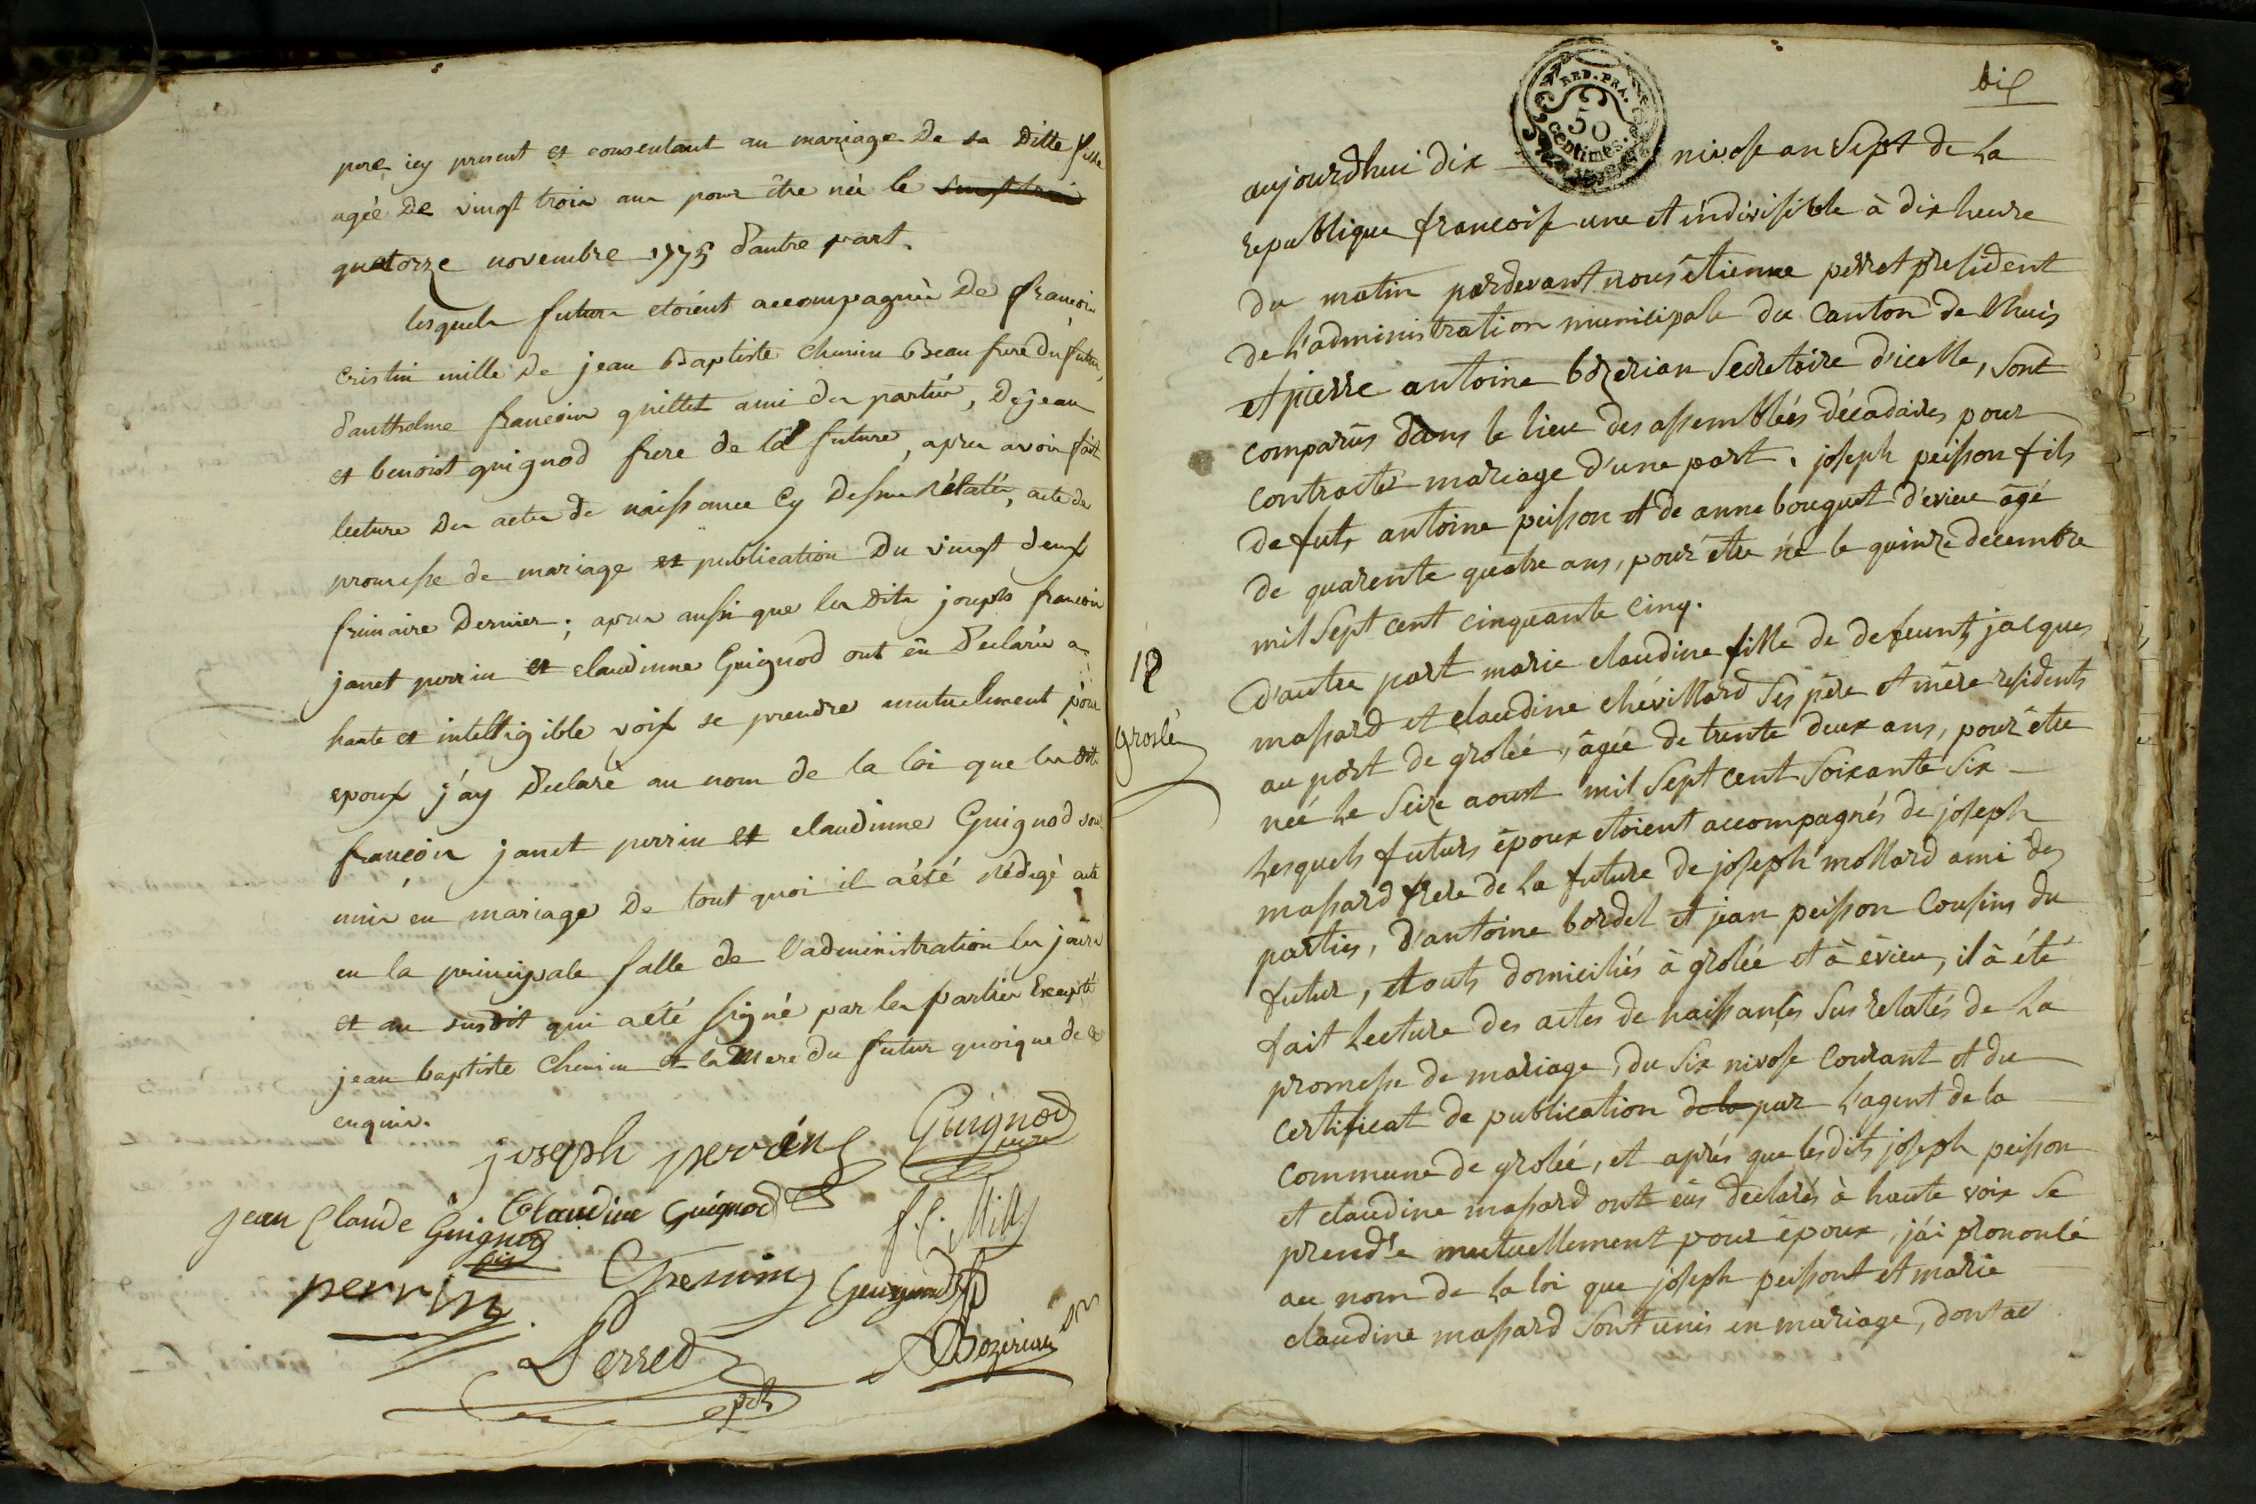 pere icy present et consentant au mariage de sa ditte fille
agée de vingt trois ans pour être née le
quatorze novembre 1775 d'autre part.
lesquels futurs etoient accompagnés de francois
cristin mille de jean baptiste chenin beau frere du futur,
d'anthelme francois guillet ami des parties, de jean
et benoist guignod frere de la future, apres avoir fait
lecture des actes de naissance cy dessus rélatés, acte de
promesse de mariage et publication du vingt deux
frimaire dernier; apres aussi que les dits joseph francois
janet perrin et claudinne Guignod ont eu declarés a
haute et intelligible voix se prendre mutuelment pour
epoux j'ay declaré au nom de la loi que les dits
françois janet perrin et claudinne Guignod sont
unis en mariage de tout quoi il a été rédigé acte
en la principale salle de l'administration les jours
et an susdit qui a été signé par les parties Excepté
jean baptiste chenin et la mere du futur quoique de ce
enquis.
joseph perrin Guignod pere
jean Claude Guignod fils Claudine Guignod f.c. Mille
perrin Chenin Guignod
Perret pdt Bozerian sre
bis
RED. PRA.
50
centimes.
aujourdhui dix nivose an sept de la
republique francoise une et indivisible à dix heure
du matin pardevant nous étienne perret president
de l'administration municipale du canton de lhuis
et pierre antoine bozerian secretaire d'icelle, sont
comparus dans le lieu des assemblées décadaires pour
contracter mariage d'une part, joseph peisson fils
de futs antoine peisson et de anne bouquet d'evieu âgé
de quarente quatre ans, pour être né le quinze decembre
mil sept cent cinquante cinq.
12
Groslé
d'autre part marie claudine fille de defeunts jacques
massard et claudine chevillard ses père et mère residents
au port de grolée, âgée de trente deux ans, pour être
née le seize aoust mil sept cent soixante six
Lesquels futurs époux etoient accompagnés de joseph
massard frere de la future de joseph mollard ami des
parties, d'antoine bordel et jean peisson cousins du
futur, et touts domiciliés à grolée et à évieu, il à été
fait lecture des actes de naissances sus relatés de la
promesse de mariage, du six nivose courant et du
certificat de publication de la par l'agent de la
commune de grolée, et aprés que lesdits joseph peisson
et claudine massard ont eüs declarés à haute voix se
prendre mutuellement pour époux, j'ai prononcé
au nom de la loi que joseph peissont et marie
claudine massard sont unis en mariage, dont ac